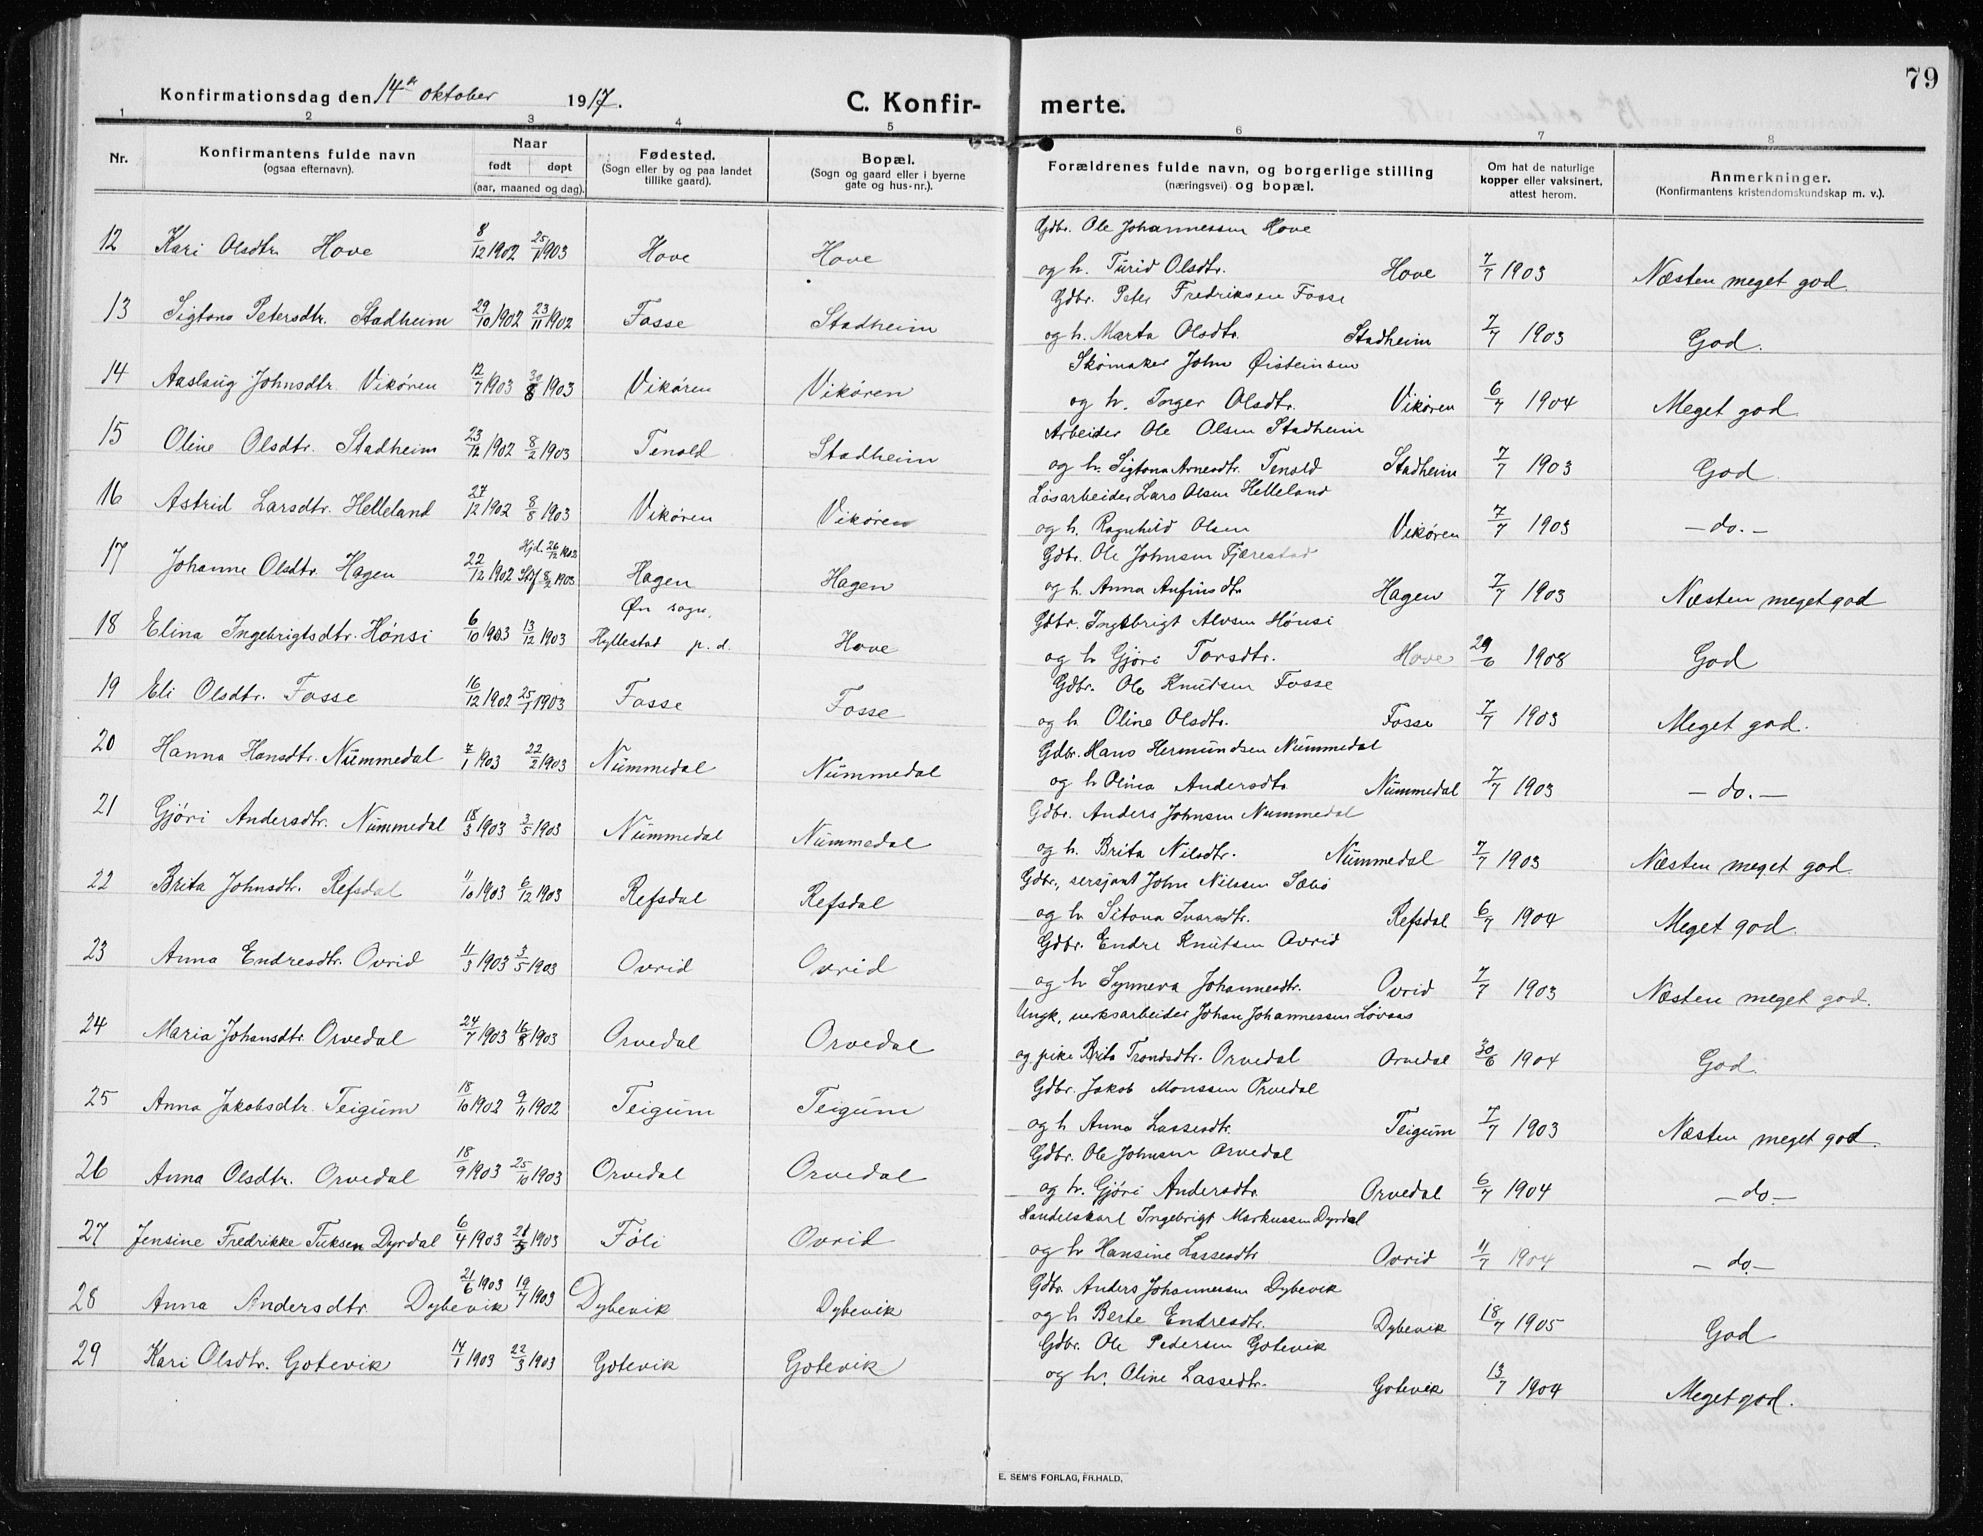 79
Konfirmationsdag den 14de oktober 1917.
C. Konfir- merte.
1 2 3 4 5 6 7 8
Nr.
Konfirmantens fulde navn
(ogsaa efternavn).
Naar
født døpt
(aar, maaned og dag).
Fødested.
(Sogn eller by og paa landet
tillike gaard).
Bopæl.
(Sogn og gaard eller i byerne
gate og hus-nr.).
Forældrenes fulde navn, og borgerlige stilling
(næringsvei) og bopæl.
Om hat de naturlige
kopper eller vaksinert,
attest herom.
Anmerkninger.
(Konfirmantens kristendomskundskap m. v.).
Gdbr. Ole Johannessen Hove
12 Kari Olsdtr. Hove 8/12 1902 25/1 1903 Hove Hove og h. Turid Olsdtr. Hove 7/7 1903 Næsten meget god.
Gdbr. Peter Fredriksen Fosse
13 Sigtona Petersdtr. Stadheim 29/10 1902 23/11 1902 Fosse Stadheim og h. Marta Olsdtr. Stadheim 7/7 1903 God.
Skomaker John Øisteinsen
14 Aaslaug Johnsdtr. Vikøren 12/7 1903 30/8 1903 Vikøren Vikøren og h. Inger Olsdtr. Vikøren 6/7 1904 Meget god.
Arbeider Ole Olsen Stadheim
15 Oline Olsdtr. Stadheim 23/12 1902 8/2 1903 Tenold Stadheim og h. Sigtona Arnesdtr. Tenold Stadheim 7/7 1903 God
Løsarbeider Lars Olsen Helleland
16 Astrid Larsdtr. Helleland 27/12 1902 8/8 1903 Vikøren Vikøren og h. Ragnhild Olsen Vikøren 7/7 1903 - do. -
Hjd. 26/12 1902 Gdbr. Ole Johnsen Fjærestad
17 Johanne Olsdtr. Hagen 22/12 1902 Stf 8/2 1903 Hagen Hagen og h. Anna Anfinsdtr Hagen 7/7 1903 Næsten meget god
Øn sogn, Gdbr. Ingebrigt Alvsen Hønsi
18 Elina Ingebrigtsdtr. Hønsi 6/10 1903 13/12 1903 Hyllestad p. d. Hove og h Gjøri Torsdtr. Hove 29/6 1908 God
Gdbr. Ole Knutsen Fosse
19 Eli Olsdtr. Fosse 16/12 1902 25/1 1903 Fosse Fosse og h Oline Olsdtr. Fosse 7/7 1903 Meget god.
Gdbr. Hans Hermundsen Nummedal
20 Hanna Hansdtr. Nummedal 7/1 1903 22/2 1903 Nummedal Nummedal og h Olina Andersdtr Nummedal 7/7 1903 - do. -
Gdbr. Anders Johnsen Nummedal
21 Gjøri Andersdtr. Nummedal 18/3 1903 3/5 1903 Nummedal Nummedal og h. Brita Nilsdtr. Nummedal 7/7 1903 Næsten meget god.
Gdbr., sersjant John Nilssen Sæbø
22 Brita Johnsdtr. Refsdal 11/10 1903 6/12 1903 Refsdal Refsdal og h Sitona Ivarsdtr. Refsdal 6/7 1904 Meget god.
Gdbr. Endre Knutsen Ovrid
23 Anna Endresdtr. Ovrid 11/3 1903 3/5 1903 Ovrid Ovrid og h Synneva Johannesdtr. Ovrid 7/7 1903 Næsten meget god.
Ungk, verksarbeider Johan Johannessen Løvaas
24 Maria Johansdtr Orvedal 24/7 1903 16/8 1903 Orvedal Orvedal og pike Brita Trondsdtr. Orvedal Orvedal 30/6 1904 God.
Gdbr. Jakob Monssen Orvedal
25 Anna Jakobsdtr. Teigum 18/10 1902 9/11 1902 Teigum Teigum og h Anna Lassesdtr. Teigum 7/7 1903 Næsten meget god.
Gdbr. Ole Johnsen Orvedal
26 Anna Olsdtr. Orvedal 18/9 1903 25/10 1903 Orvedal Orvedal og h. Gjøri Andersdtr. Orvedal 6/7 1904 - do -
Handelskarl Ingebrigt Markussen Dyrdal
27 Jensine Fredrikke Tuksen Dyrdal 6/4 1903 21/5 1903 Føli Ovrid og h Hansine Lassesdtr Ovrid 11/7 1904 - do. -
Gdbr. Anders Johannessen Dybevik
28 Anna Andersdtr. Dybevik 21/6 1903 19/7 1903 Dybevik Dybevik og h Berte Endresdtr. Dybevik 18/7 1905 God
Gdbr. Ole Pedersen Gotevik
29 Kari Olsdtr. Gotevik 14/1 1903 22/3 1903 Gotevik Gotevik og h. Oline Lassedtr. Gotevik 13/7 1904 Meget god.
E. SEM'S FORLAG, FR.HALD.